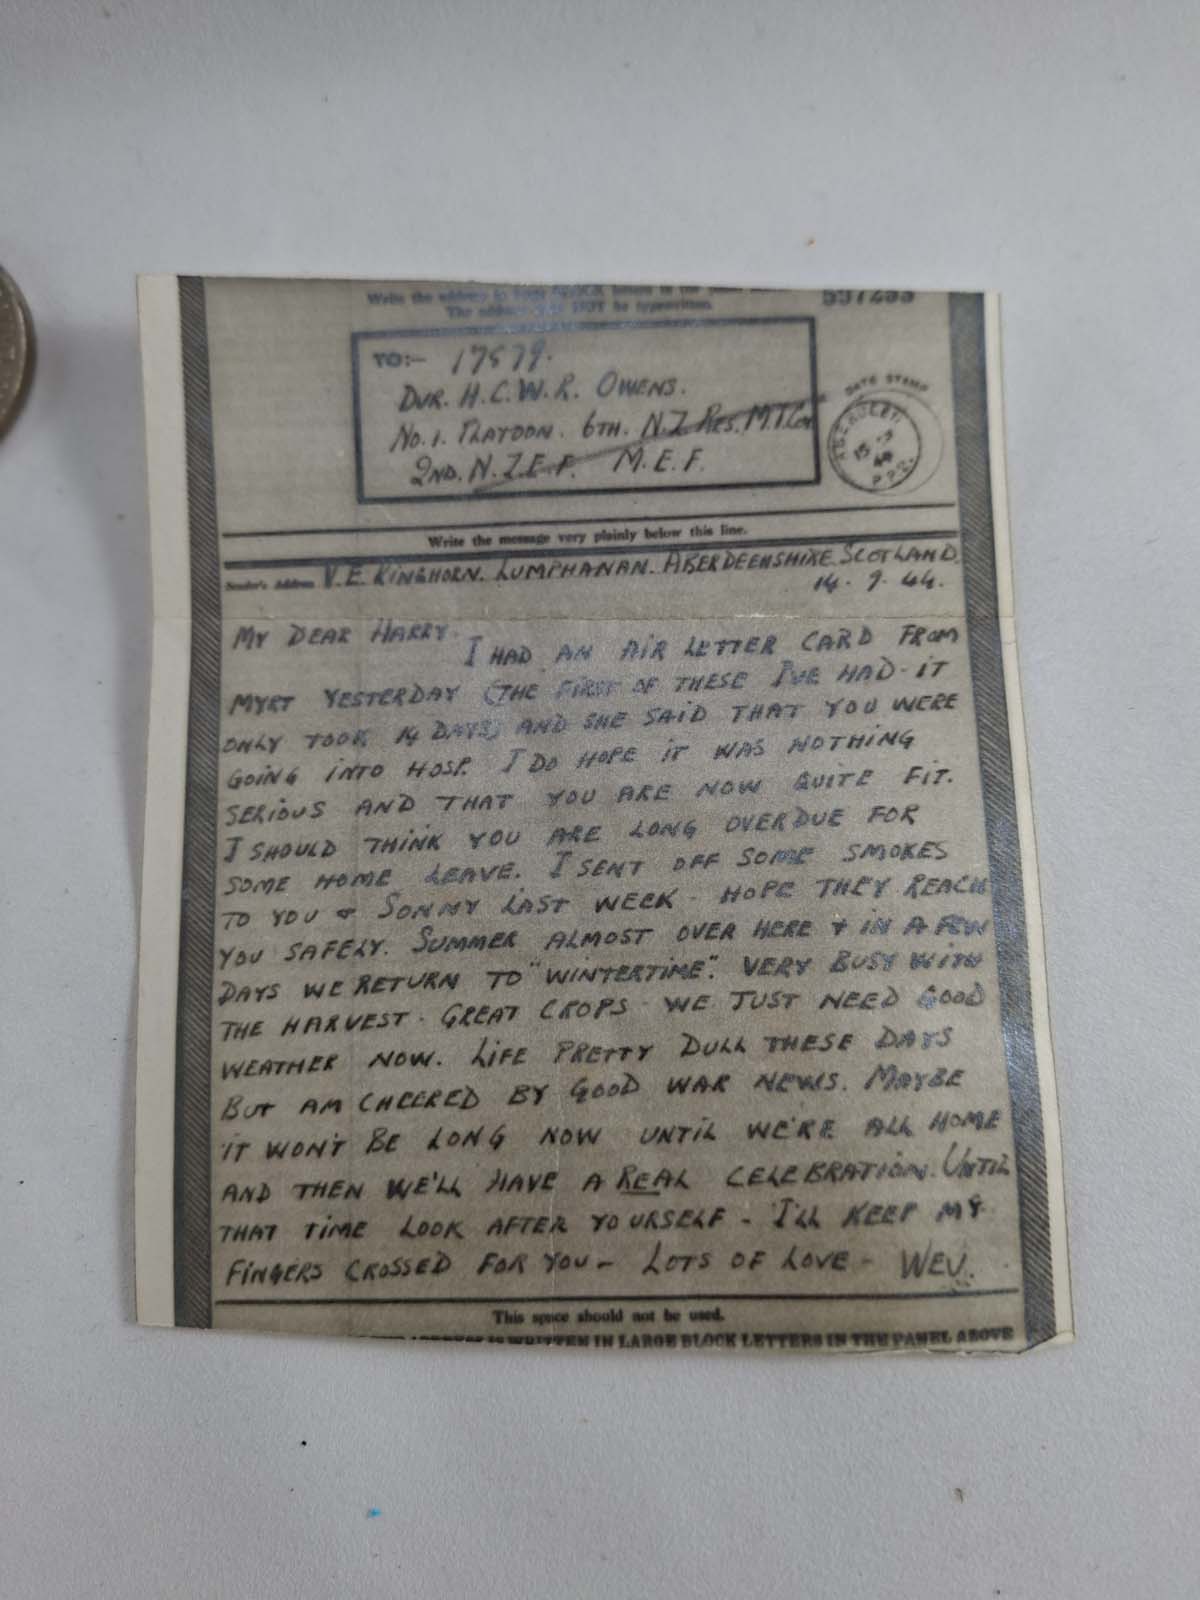 Write the address in large BLOCK letters in the
The address NOT be typewritten.
537233
TO:- 17579.
DVR. H.C.W.R. OWENS.
NO.1. PLATOON. 6TH. N.Z RES. M.T. Coy
2ND. N.Z.E.F. M.E.F.
DATE STAMP
ABERDEEN
15 9
44
P.P.O.
Write the message very plainly below this line.
Sender's Address V.E. KINGHORN. LUMPHANAN. ABERDEENSHIRE. SCOTLAND.
14. 9. 44.
MY DEAR HARRY.
I HAD AN AIR LETTER CARD FROM
MYRT YESTERDAY (THE FIRST OF THESE I'VE HAD - IT
ONLY TOOK 14 DAYS) AND SHE SAID THAT YOU WERE
GOING INTO HOSP. I DO HOPE IT WAS NOTHING
SERIOUS AND THAT YOU ARE NOW QUITE FIT.
I SHOULD THINK YOU ARE LONG OVERDUE FOR
SOME HOME LEAVE. I SENT OFF SOME SMOKES
TO YOU & SONNY LAST WEEK - HOPE THEY REACH
YOU SAFELY. SUMMER ALMOST OVER HERE & IN A FEW
DAYS WE RETURN TO "WINTERTIME". VERY BUSY WITH
THE HARVEST - GREAT CROPS - WE JUST NEED GOOD
WEATHER NOW. LIFE PRETTY DULL THESE DAYS
BUT AM CHEERED BY GOOD WAR NEWS. MAYBE
IT WON'T BE LONG NOW UNTIL WE'RE ALL HOME
AND THEN WE'LL HAVE A REAL CELEBRATION. UNTIL
THAT TIME LOOK AFTER YOURSELF - I'LL KEEP MY
FINGERS CROSSED FOR YOU - LOTS OF LOVE - WEV.
This space should not be used.
ADDRESS IS WRITTEN IN LARGE BLOCK LETTERS IN THE PANEL ABOVE